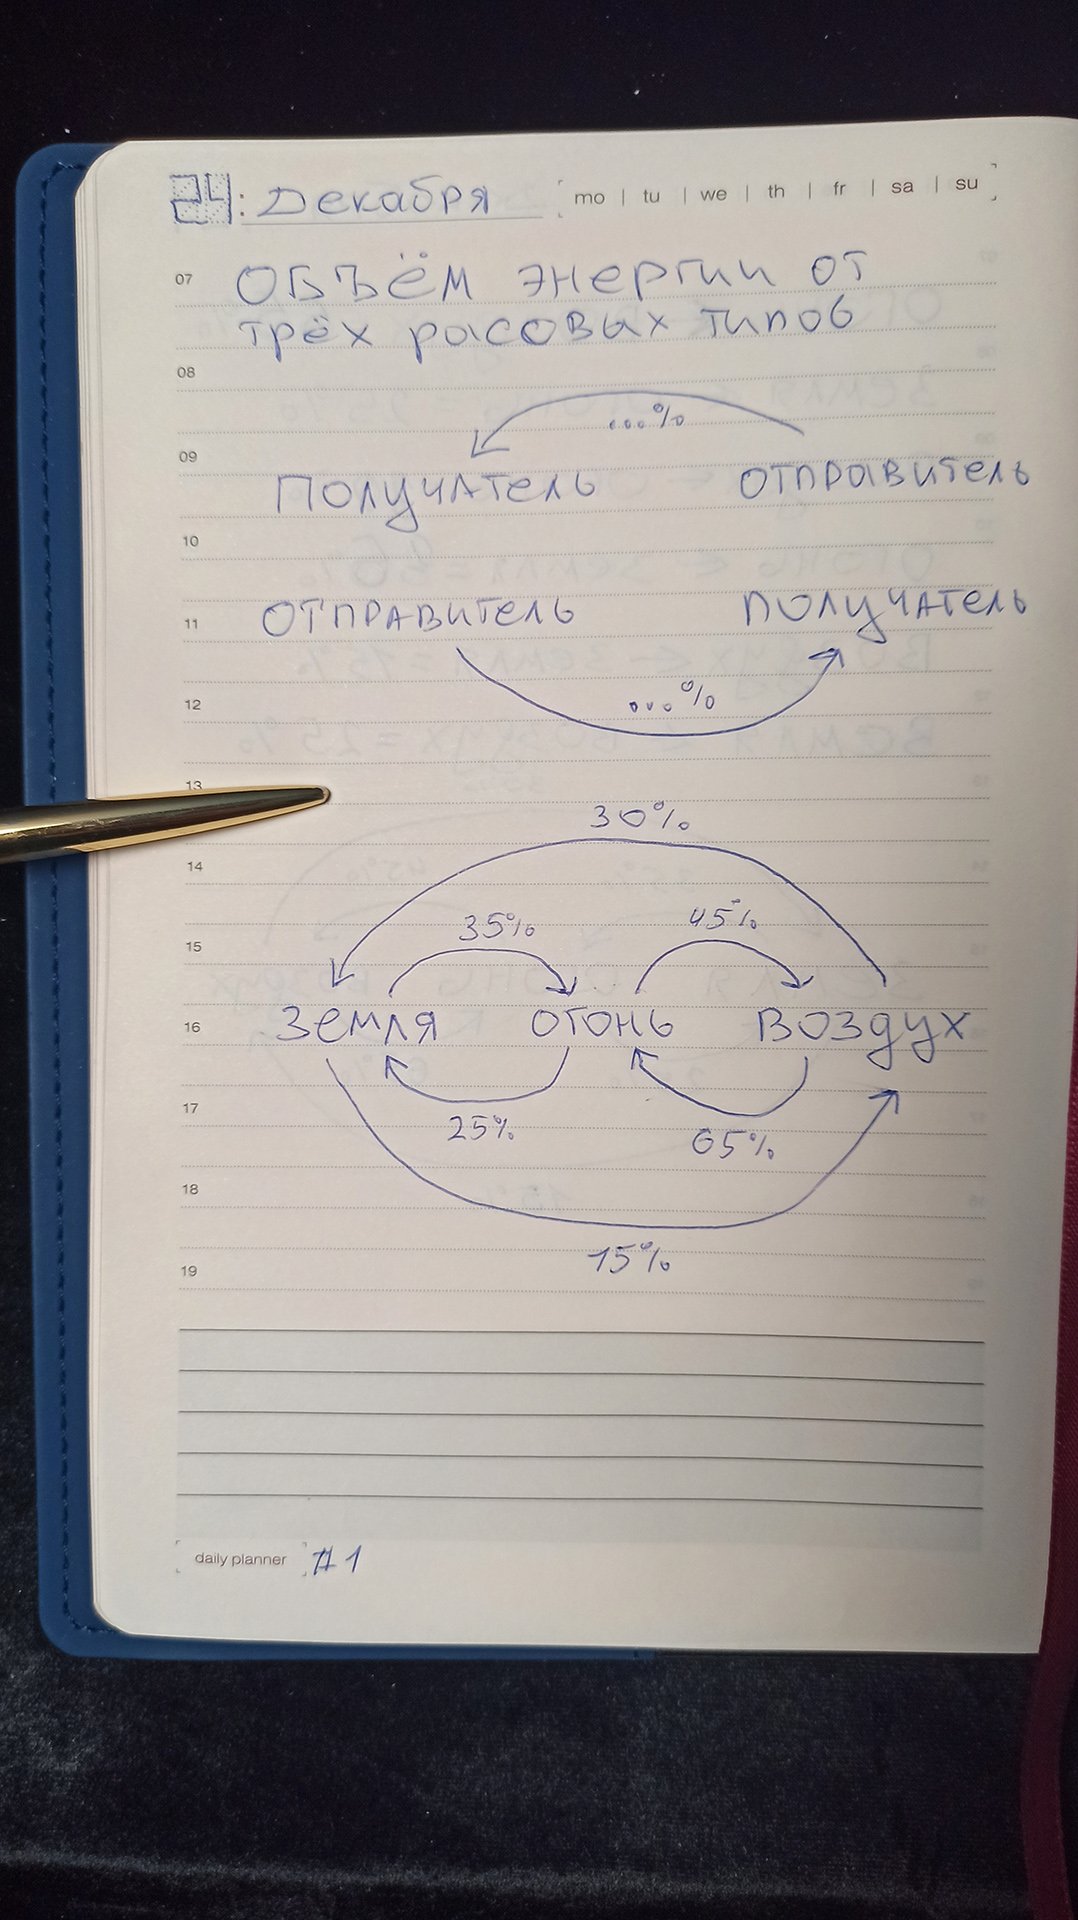 24: Декабря [ mo | tu | we | th | fr | sa | su ]
07 Объём энергии от
трёх расовых типов
08
...%
09 Получатель отправитель
10
11 отправитель получатель
12 ...%
13
30%
14
35% 45%
15
16 Земля огонь воздух
17
25% 65%
18
15%
19
[ daily planner ] #1